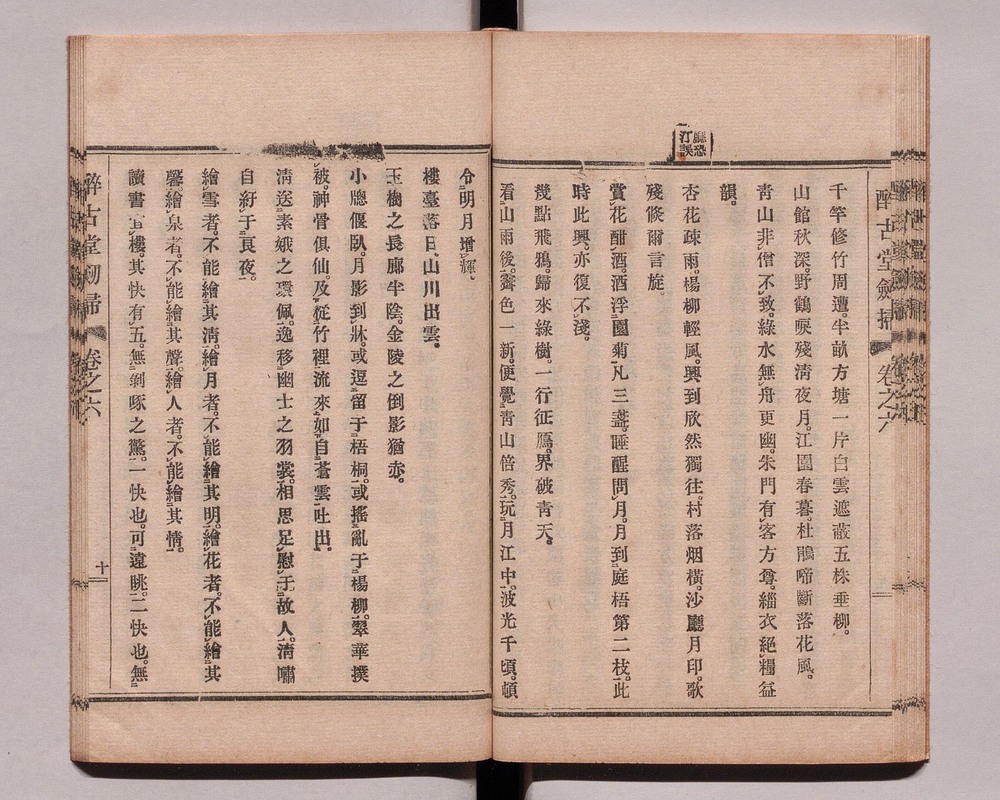 廳恐
汀誤
醉古堂劍掃 卷之六
千竿修竹周遭。半畝方塘一片白雲遮蔽五株垂柳。
山館秋深。野鶴唳殘淸夜月。江園春暮。杜鵑啼斷落花風。
靑山非僧不致。綠水無舟更幽。朱門有客方尊。緇衣絕糧益
韻。
杏花疎雨。楊柳輕風。興到欣然獨往。村落烟橫。沙廳月印。歌
殘倐爾言旋。
賞花酣酒。酒浮園菊。凡三盞。睡醒問月。月到庭梧第二枝。此
時此興。亦復不淺。
幾點飛鴉。歸來綠樹。一行征鴈。界破靑天。
看山雨後。霽色一新。便覺靑山倍秀。玩月江中。波光千頃。頓
令明月增輝。
樓臺落日。山川出雲。
玉樹之長廊半陰。金陵之倒影猶赤。
小牕偃臥。月影到牀。或逗留于梧桐。或搖亂于楊柳。翠華撲
被。神骨俱仙。及從竹裡流來。如自蒼雲吐出。
淸送素娥之環佩。逸移幽士之羽裳。相思足慰于故人。淸嘯
自紆于良夜。
繪雪者。不能繪其淸。繪月者。不能繪其明。繪花者。不能繪其
馨。繪泉者。不能繪其聲。繪人者。不能繪其情。
讀書宜樓。其快有五。無剝啄之驚。一快也。可遠眺。二快也。無
醉古堂劍掃 卷之六
十